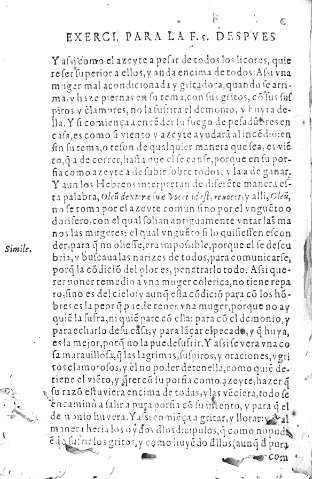 EXERCI. PARA LA F.5. DESPVES
Y assi como el azeyte a pesar de todos los licores, quie
re ser superior a ellos, y anda encima de todos: Assi vna
muger mal acondicionada y gritadora, quando se arri-
ma, y haze piernas en su tema, con sus gritos, cõ sus sus
piros y clamores, no la sufrira el demonio, y huyra de-
lla. Y si comiença a encẽder su fuego de pesadũbres en
casa, es como si viento y azeyte ayudarã al incẽdio: en
sin su tema, o teson de qualquier manera que sea, es viẽ
to, q̃ a de correr, hasta que el se canse, porque en su por-
fia como azeyte a de subir sobre todos, y la a de ganar.
Y aun los Hebreos interpretan de diferẽte manera es-
ta palabra, Oleũ dexteræ suæ
y alli, Oleũ,
no se toma por el azeyte comun sino por el vnguẽto o
dorifero, con el qual solian antiguamente vntar las ma
nos las mugeres: el qual vnguẽto si lo quisiessen escon
der, para q̃ no oliesse, era imposible, porque el se descu
bria, y buscaua las narizes de todos, para comunicarse,
porq̃ la cõdiciõ del olor es, penetrarlo todo. Assi que-
rer poner remedio a vna muger colerica, no tiene repa
ro, sino es del cielo: y aunq̃ esta cõdiciõ para cõ los hõ-
bres es la peor q̃ puede tener vna muger, porque no ay
quiẽ la sufra, ni quiẽ pare cõ ella: para cõ el demonio, y
para echarlo de su casa, y para lãçar el pecado, y q̃ huya,
es la mejor, porq̃ no la puede sufrir. Y assi se vera vna co
sa marauillosa, q̃ las lagrimas, suspiros, y oraciones, y gri
tos clamorosos, y el no poder detenella, como quiẽ de-
tiene el viẽto, y q̃rer cõ su porfia como azeyte, hazer q̃
su razõ estuuiera encima de todas, y las vẽciera, todo se
encaminò a salir a pura porfia cõ su intento, y para q̃ el
demonio huyera. Y assi comiẽça a gritar, y llorar: y
manera heria los oydos dlos dicipulos, q̃ como no pud
ẽdo sufrir los gritos, y como huyẽdo dllos (aunq̃ d pura
com
Simile.